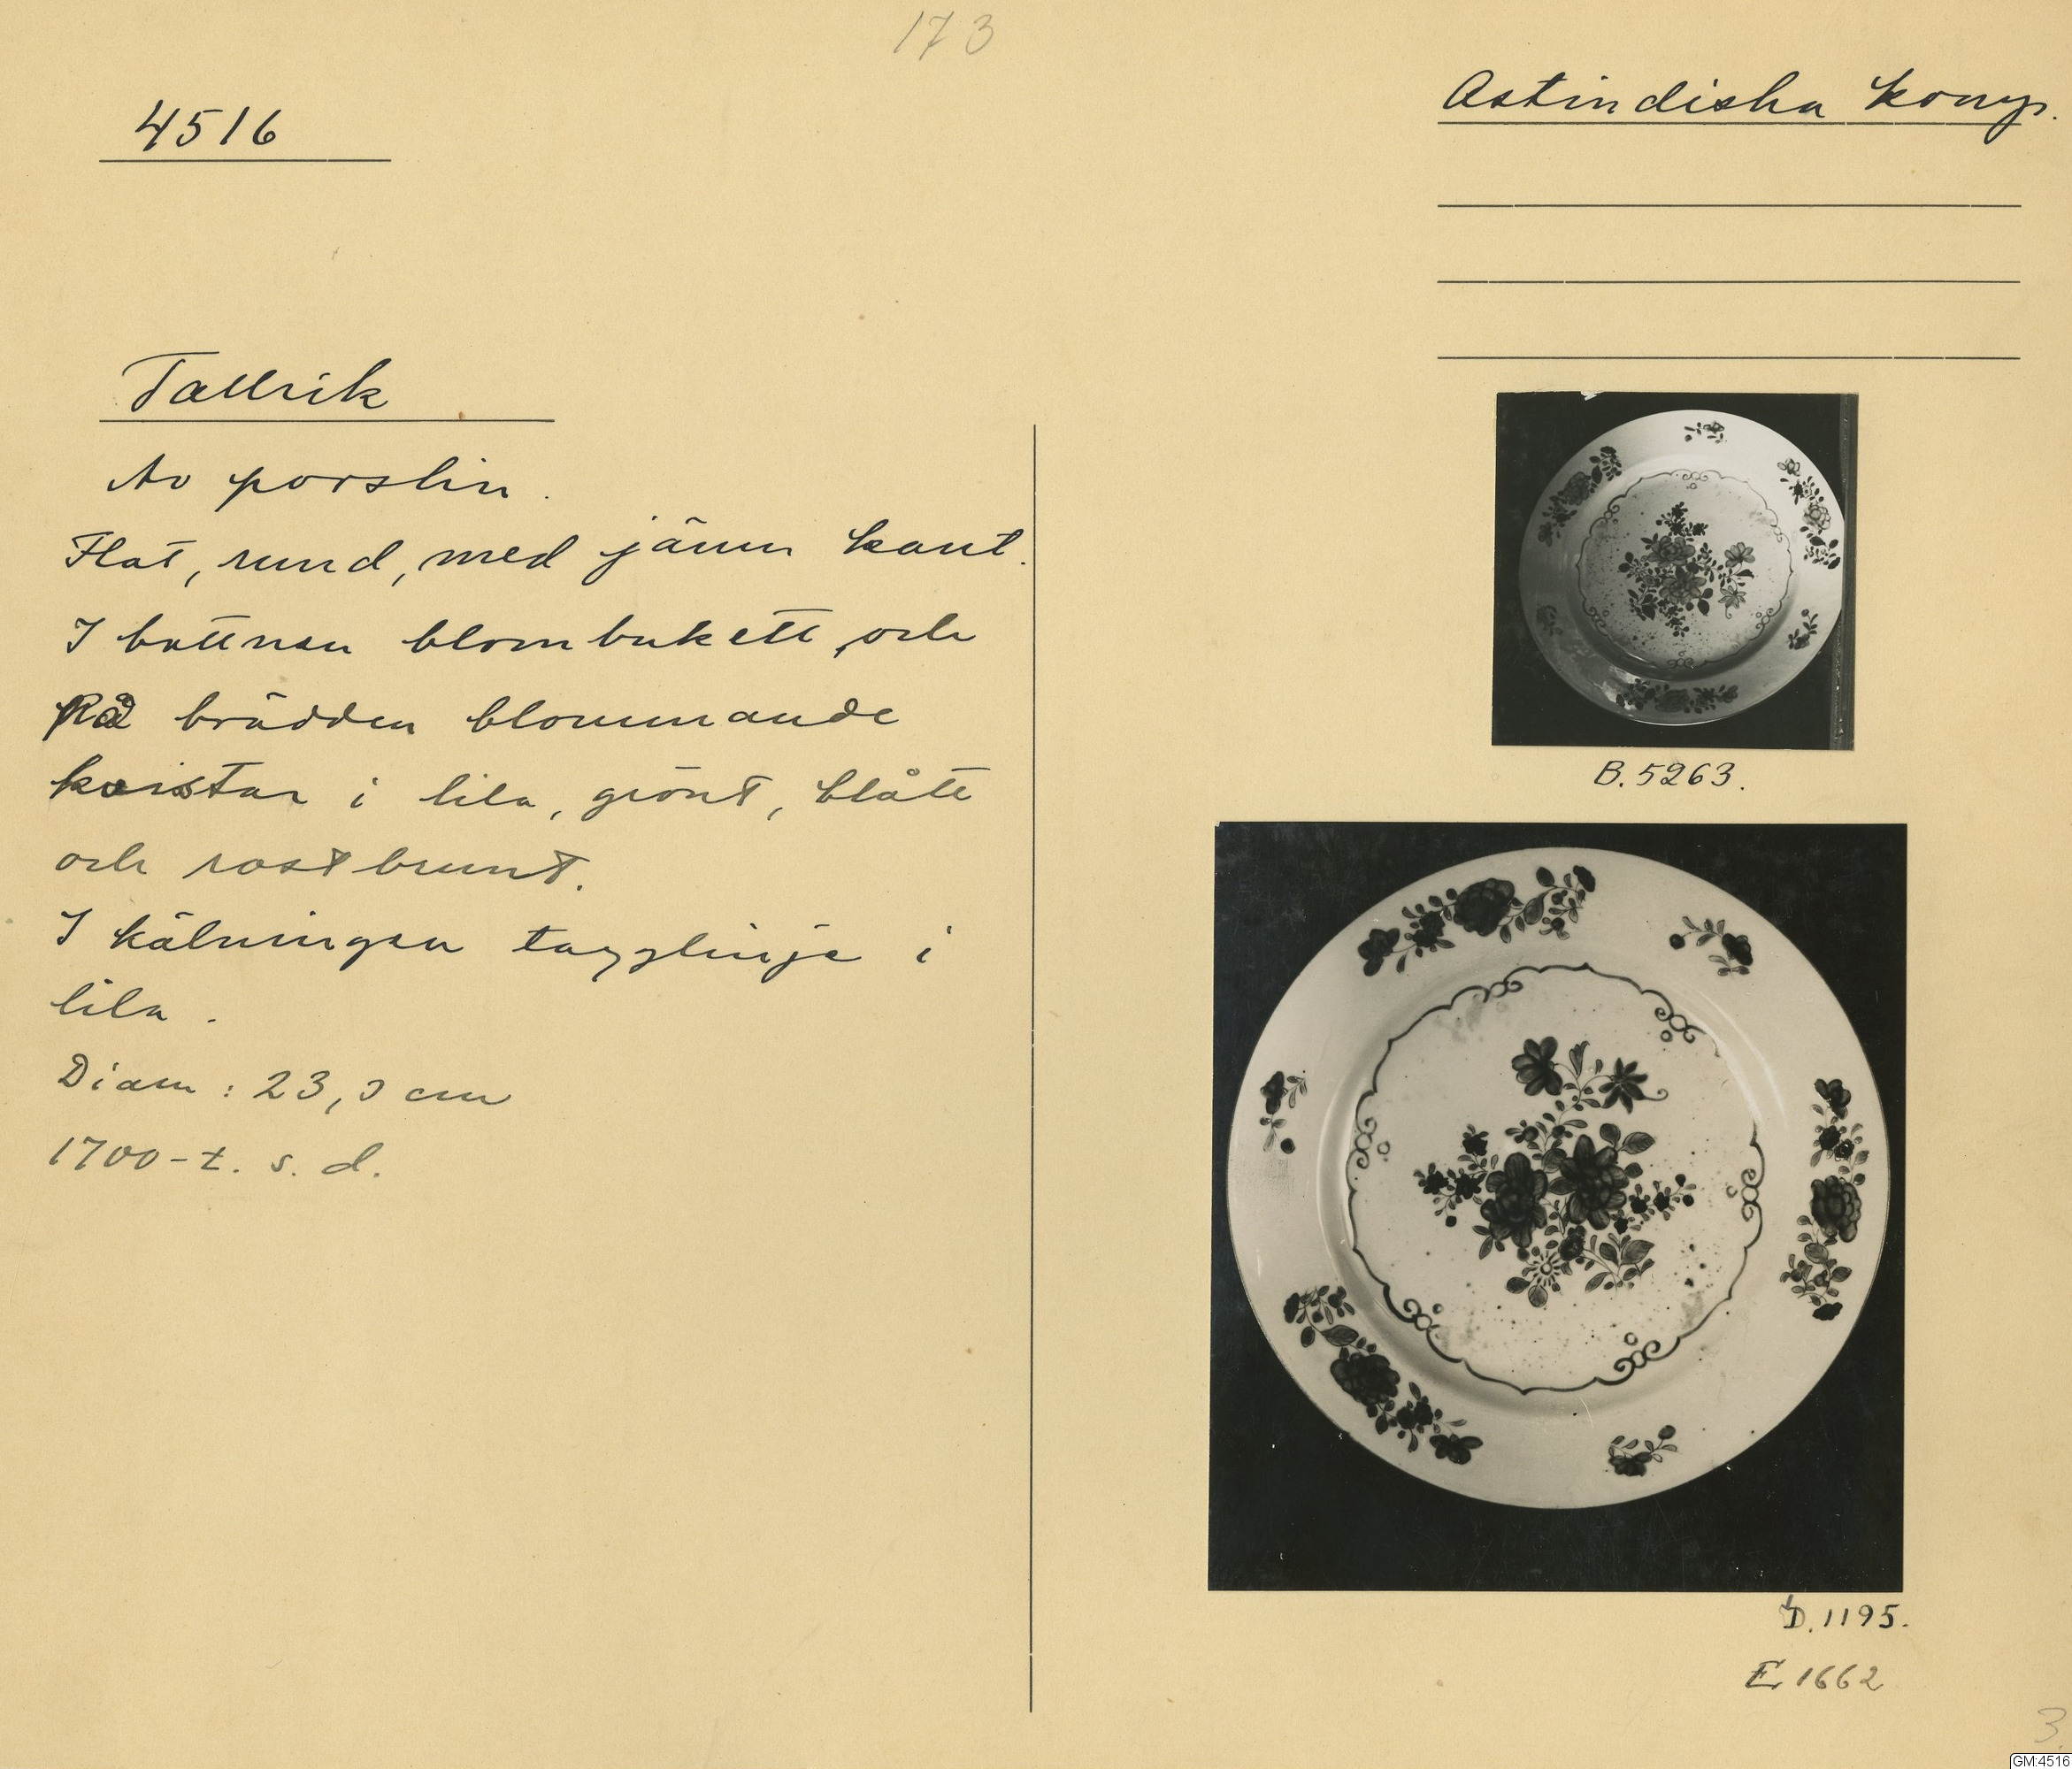 173
4516
Ostindiska komp.
Tallrik
Av porslin.
Flat, rund, med jämn kant.
I bottnen blombukett, och
På brädden blommande
kvistar i lila, grönt, blått
och rostbrunt.
I kälningen tagglinje i
lila.
Diam: 23, cm
1700-t. s. d.
B. 5263.
D. 1195.
E 1662
3.
GM:4516